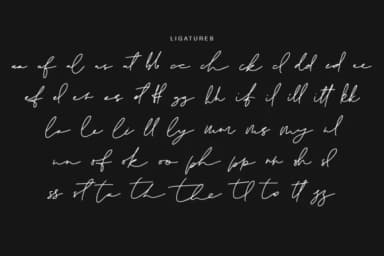 LIGATURES
aa af al as at bb cc ch ck cl dd ed ee
ef el er es et ff gg hh if il ill itt kk
la le li ll ly mm ms my nl
nn of ok oo ph pp rr sh sl
ss st ta th the tl to tt zz